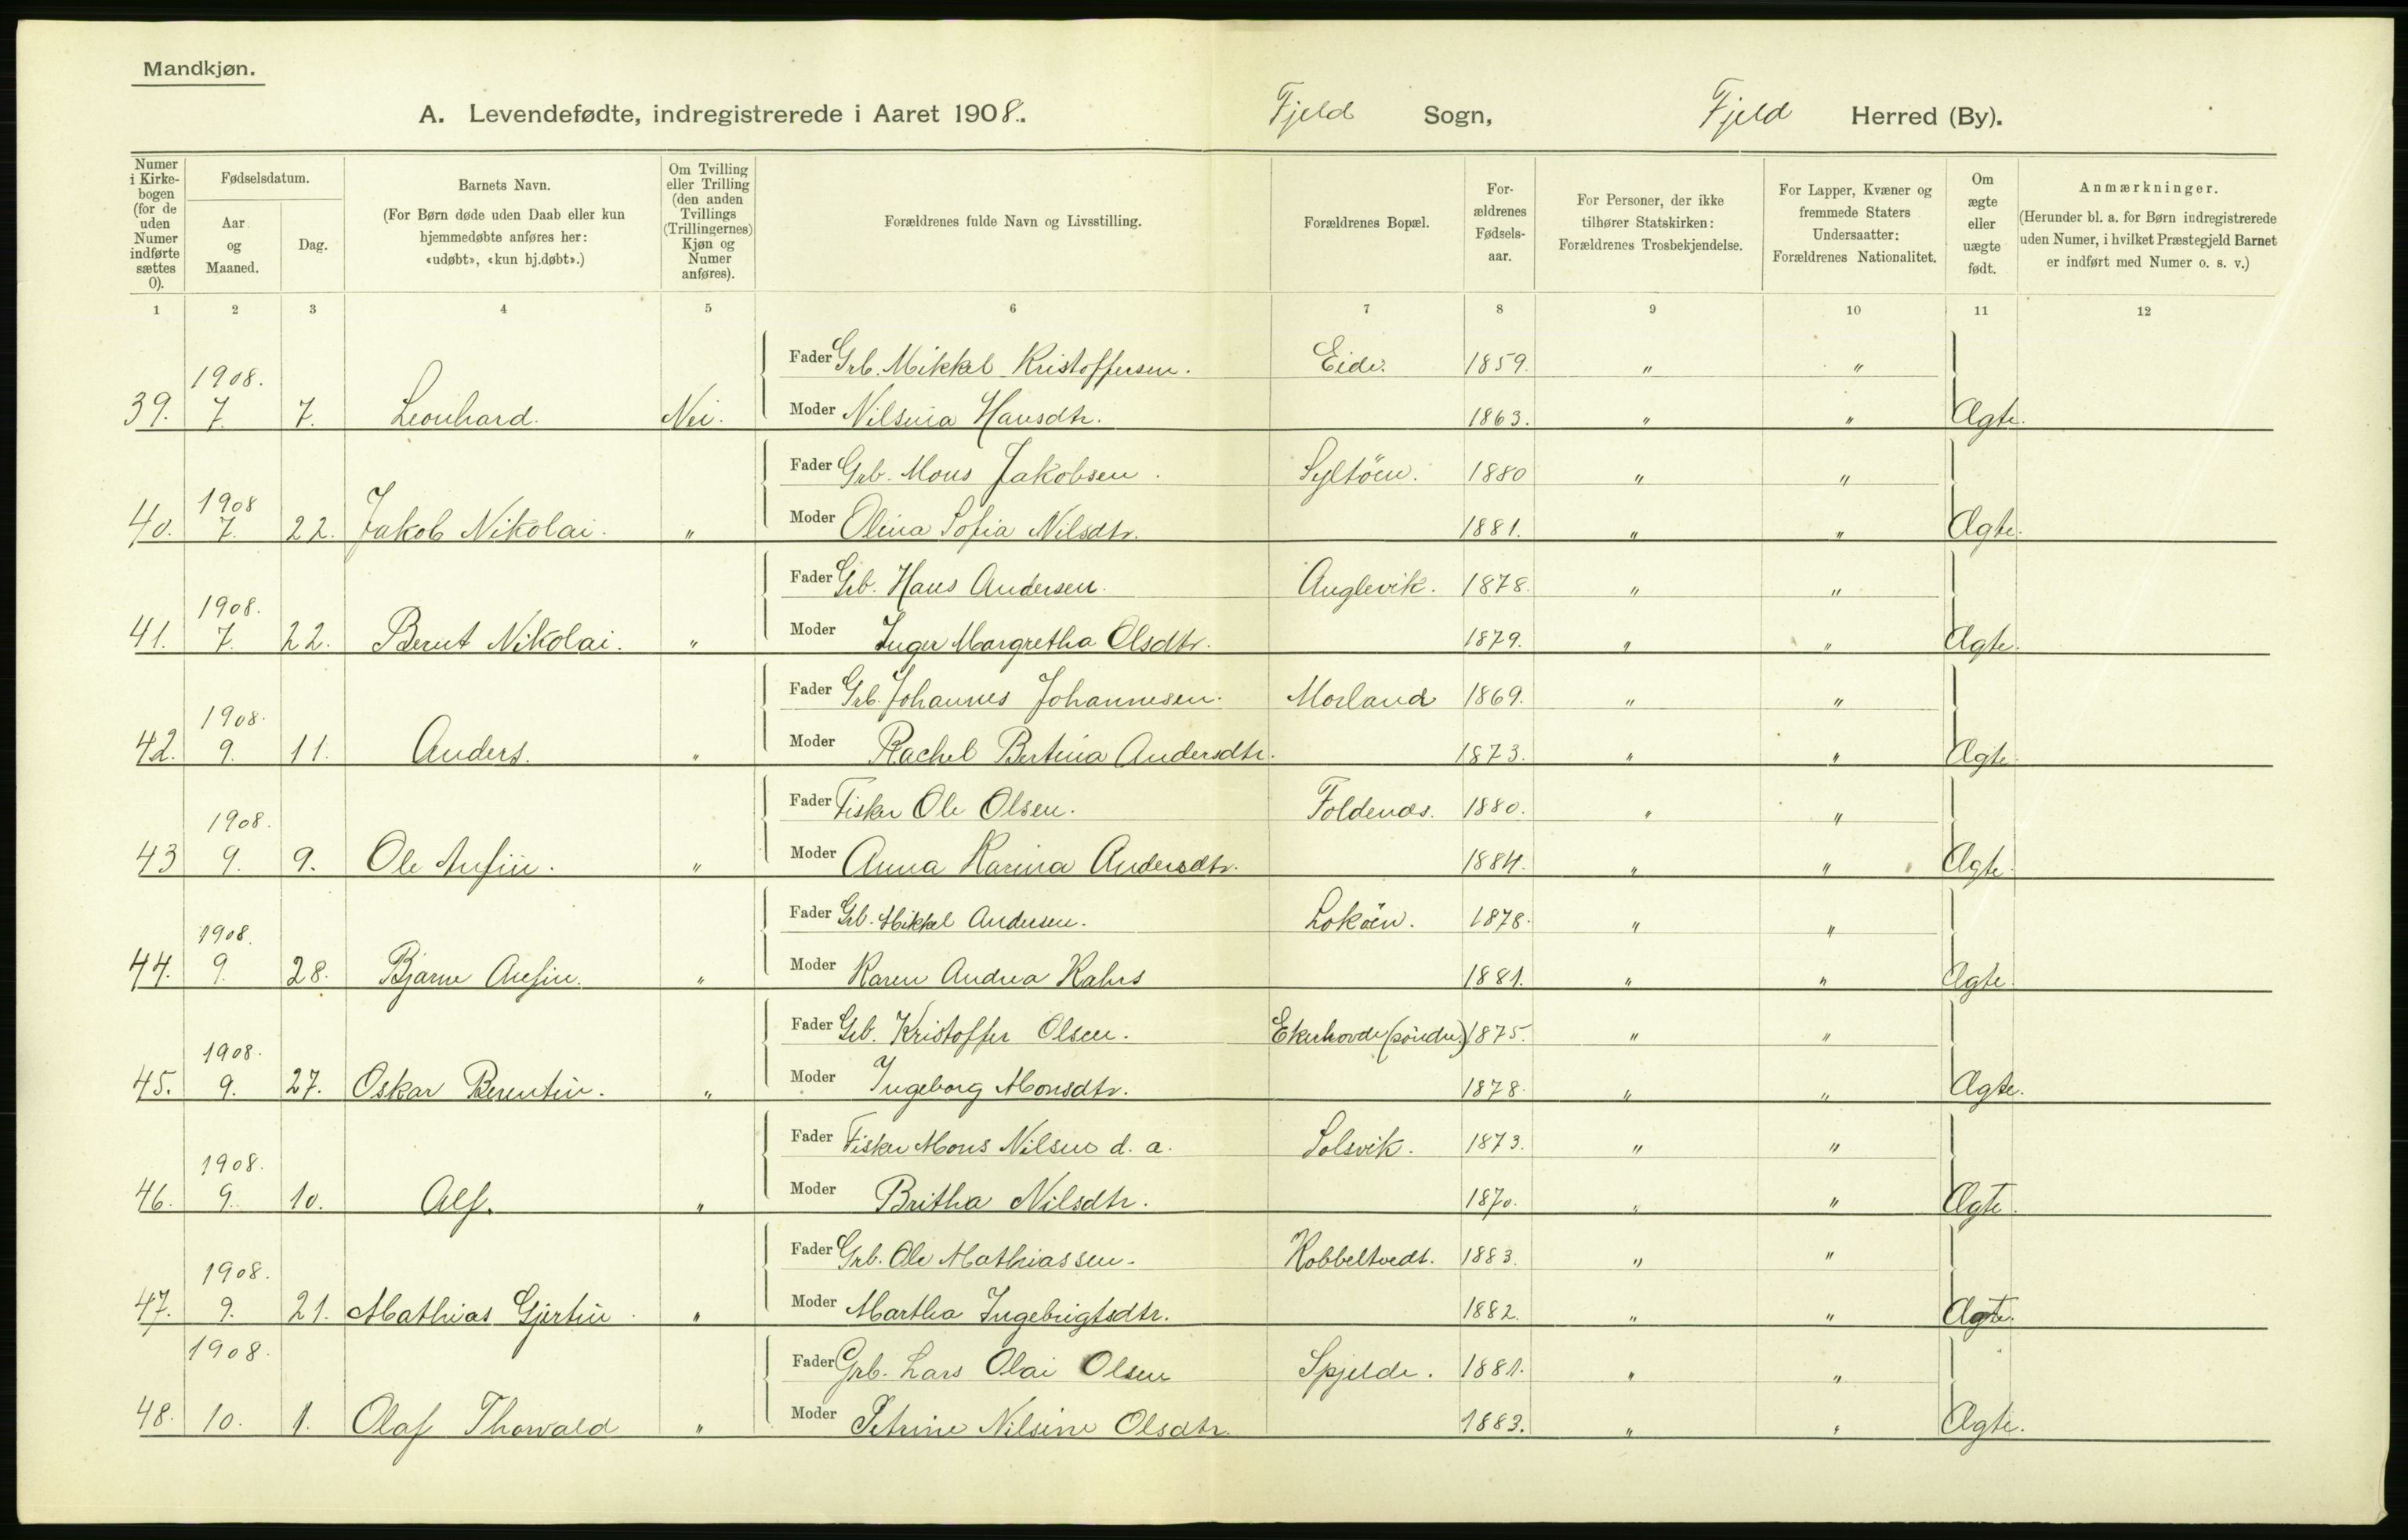 Mandkjøn.
A. Levendefødte, indregistrerede i Aaret 1908.
Fjeld Sogn, Fjeld Herred (By).
Numer i Kirkebogen (for de uden Numer indførte sættes 0).
Fødselsdatum.
Aar og Maaned.
Dag.
Barnets Navn.
(For Børn døde uden Daab eller kun hjemmedøbte anføres her: «udøbt», «kun hj.døbt».)
Om Tvilling eller Trilling (den anden Tvillings (Trillingernes) Kjøn og Numer anføres).
Forældrenes fulde Navn og Livsstilling.
Forældrenes Bopæl.
Forældrenes Fødselsaar.
For Personer, der ikke tilhører Statskirken: Forældrenes Trosbekjendelse.
For Lapper, Kvæner og fremmede Staters Undersaatter: Forældrenes Nationalitet.
Om ægte eller uægte født.
Anmærkninger.
(Herunder bl. a. for Børn indregistrerede uden Numer, i hvilket Præstegjeld Barnet er indført med Numer o. s. v.)
1 2 3 4 5 6 7 8 9 10 11 12
Fader Grb. Mikkel Kristoffersen. Eide. 1859. " "
39. 1908. 7. 7. Leonhard. Nei. Moder Nilsina Hansdtr. 1863. " " Ægte.
Fader Grb. Mons Jakobsen. Syltöen. 1880 " "
40. 1908 7. 22. Jakob Nikolai. " Moder Olina Sofia Nilsdtr. 1881. " " Ægte.
Fader Grb. Hans Andersen. Anglevik. 1878. " "
41. 1908. 7. 22. Berut Nikolai. " Moder Inger Margretha Olsdtr. 1879. " " Ægte.
Fader Grb. Johannes Johannesen. Morland 1869. " "
42. 1908. 9. 11. Anders. " Moder Rachel Bertina Andersdtr. 1873. " " Ægte.
Fader Fisker Ole Olsen. Foldenæs. 1880. " "
43 1908. 9. 9. Ole Anfin. " Moder Anna Karina Andersdtr. 1884. " " Ægte.
Fader Grb. Mikkel Andersen. Loköen. 1878. " "
44. 1908. 9. 28. Bjarne Anfin. " Moder Karen Andrea Kahrs 1881. " " Ægte.
Fader Grb. Kristoffer Olsen. Ekerhovde (söndre.) 1875. " "
45. 1908. 9. 27. Oskar Berentin. " Moder Ingeborg Monsdtr. 1878. " " Ægte.
Fader Fisker Mons Nilsen d. a. Solsvik. 1873. " "
46. 1908. 9. 10. Alf. " Moder Britha Nilsdtr. 1870. " " Ægte.
Fader Grb. Ole Mathiassen. Kobbeltvedt. 1883. " "
47. 1908. 9. 21. Mathias Gjertin. " Moder Martha Ingebrigtsdtr. 1882. " " Ægte.
Fader Grb. Lars Olai Olsen Spjelde. 1881. " "
48. 1908. 10. 1. Olaf Thorvald " Moder Petrine Nilsine Olsdtr. 1883. " " Ægte.